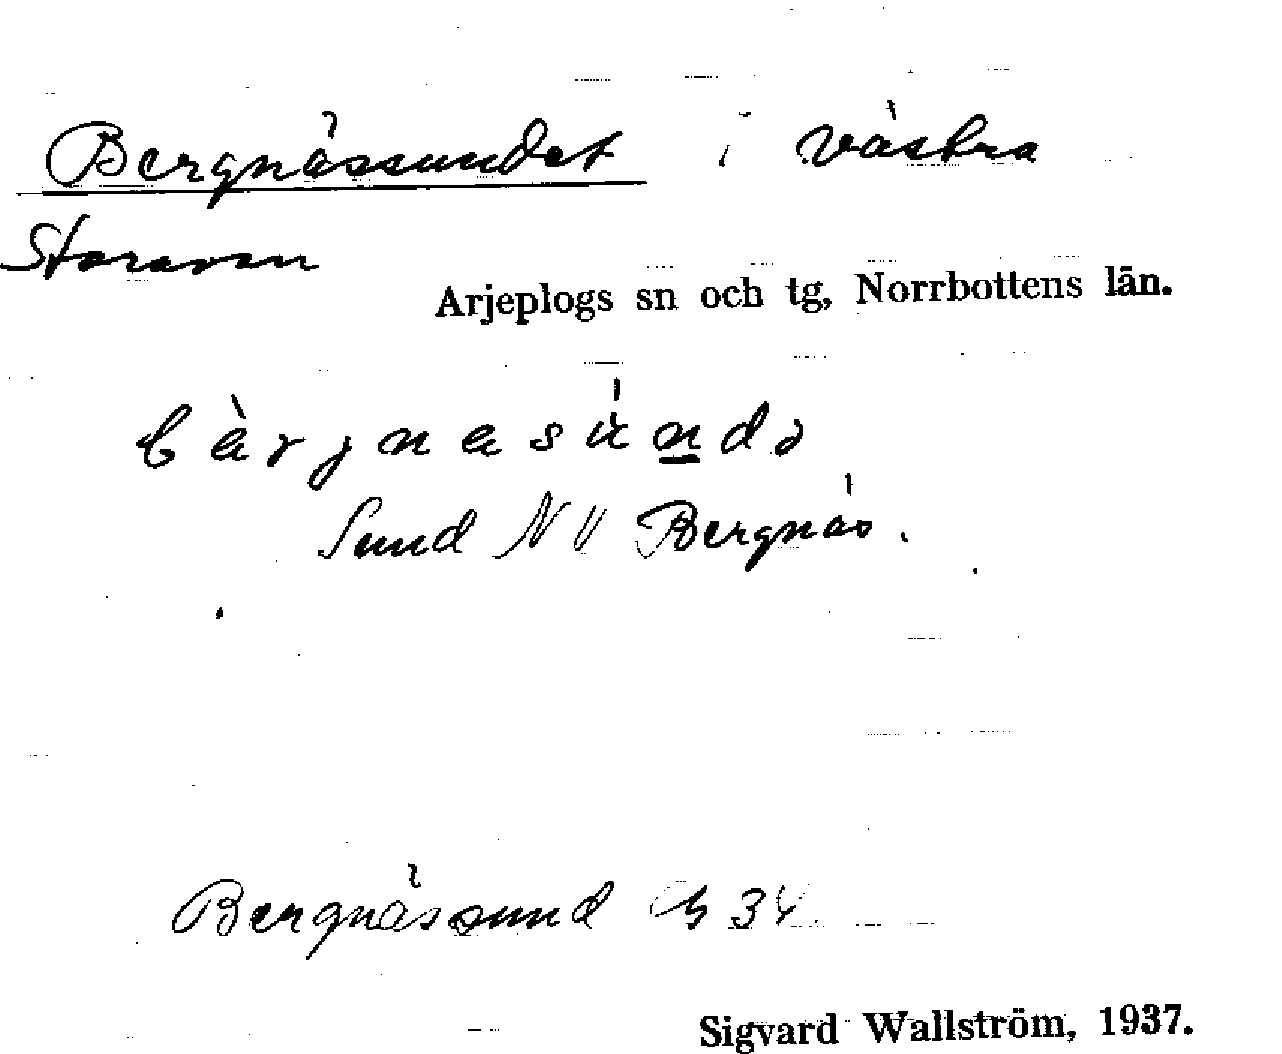 Bergnässundet i västra
Storavan
Arjeplogs sn och tg, Norrbottens län.
bàrjnasúndə
Sund NV Bergnäs.
Bergnässund 34
Sigvard Wallström, 1937.